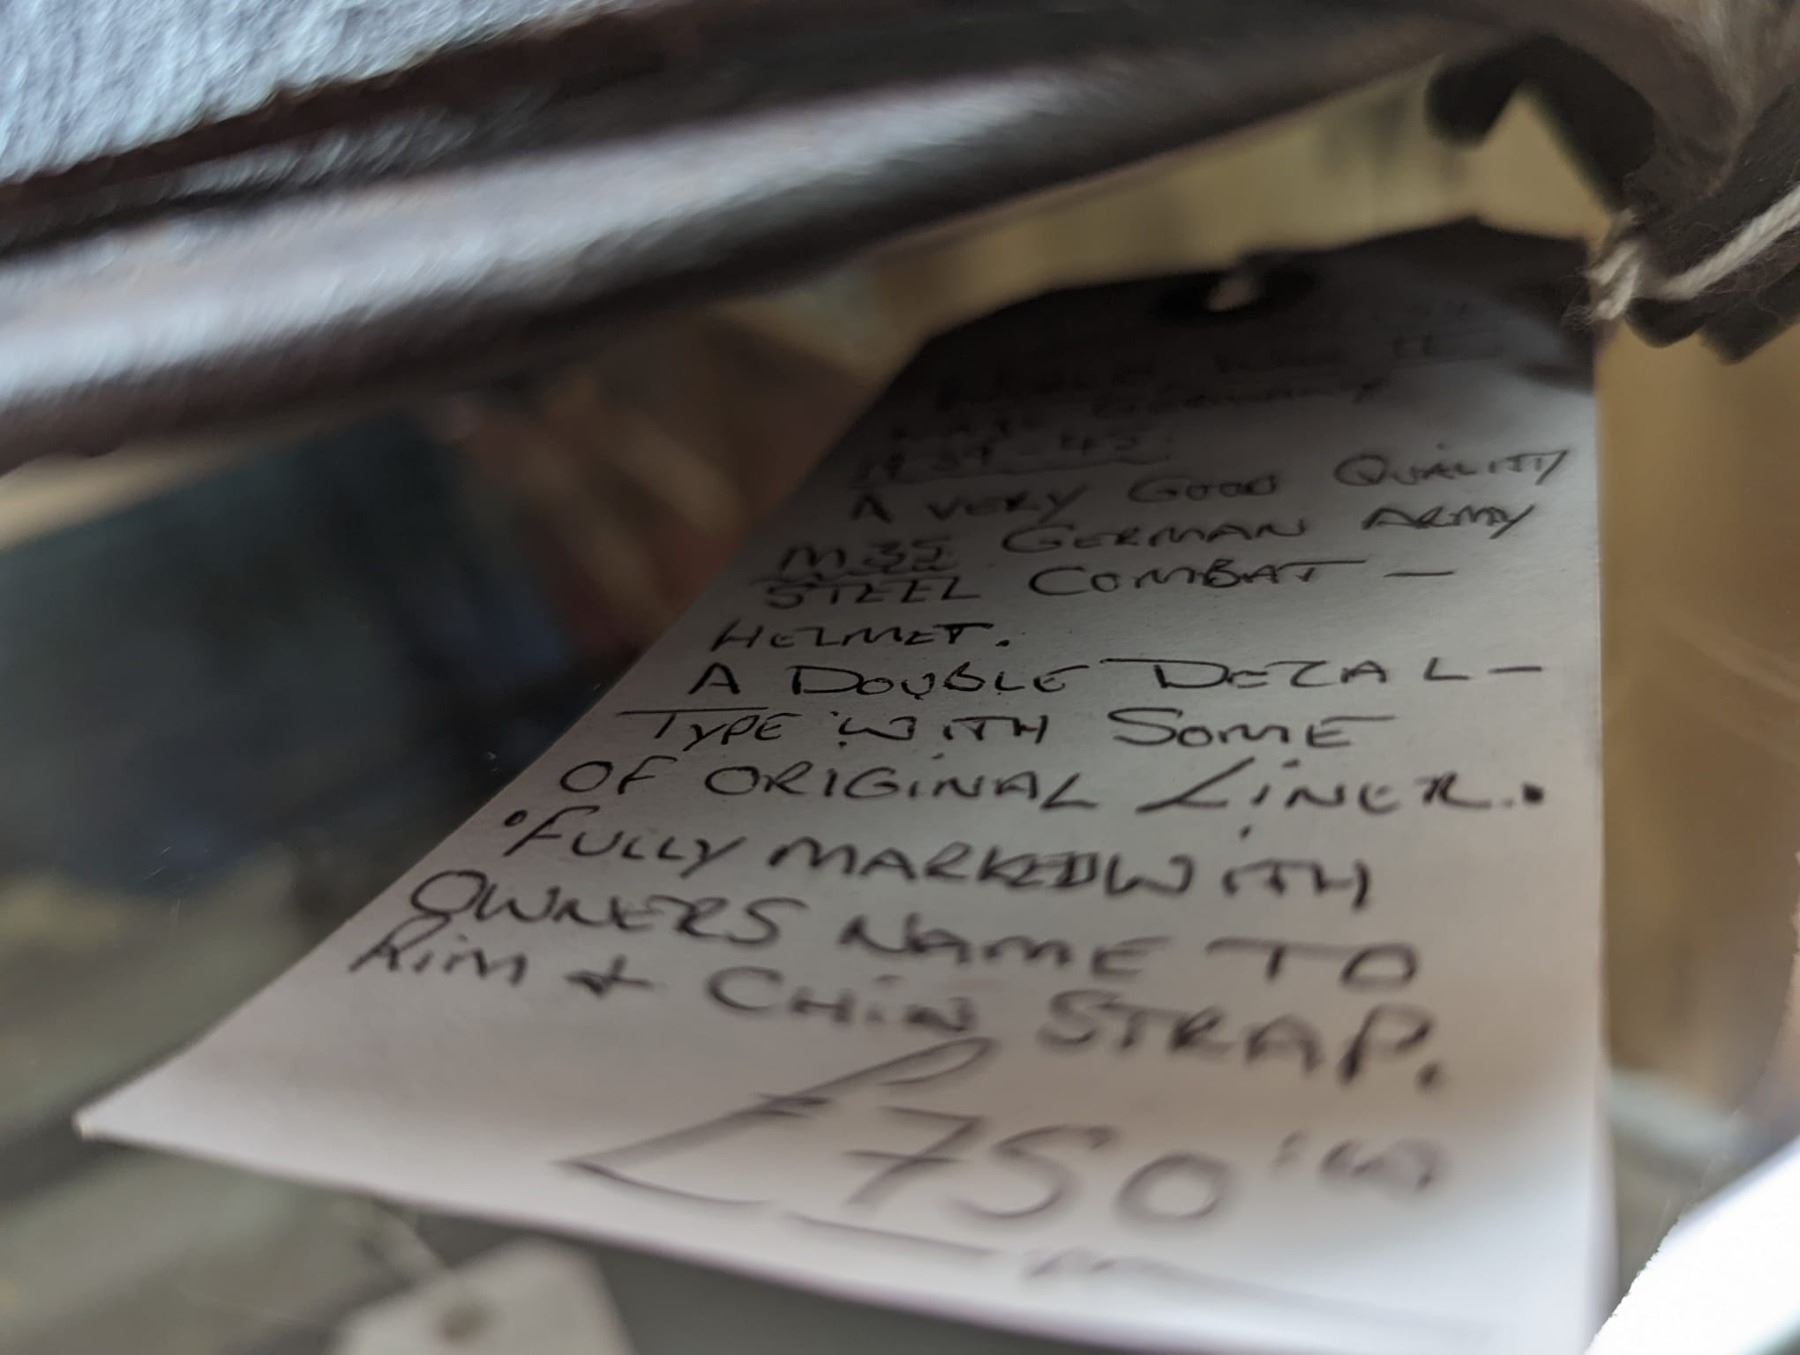 WORLD WAR II
NAZI GERMANY
1939-45.
A VERY GOOD QUALITY
M35 GERMAN ARMY
STEEL COMBAT -
HELMET.
A DOUBLE DECAL -
TYPE WITH SOME
OF ORIGINAL LINER.
• FULLY MARKED WITH
OWNERS NAME TO
Rim + CHIN STRAP.
£750